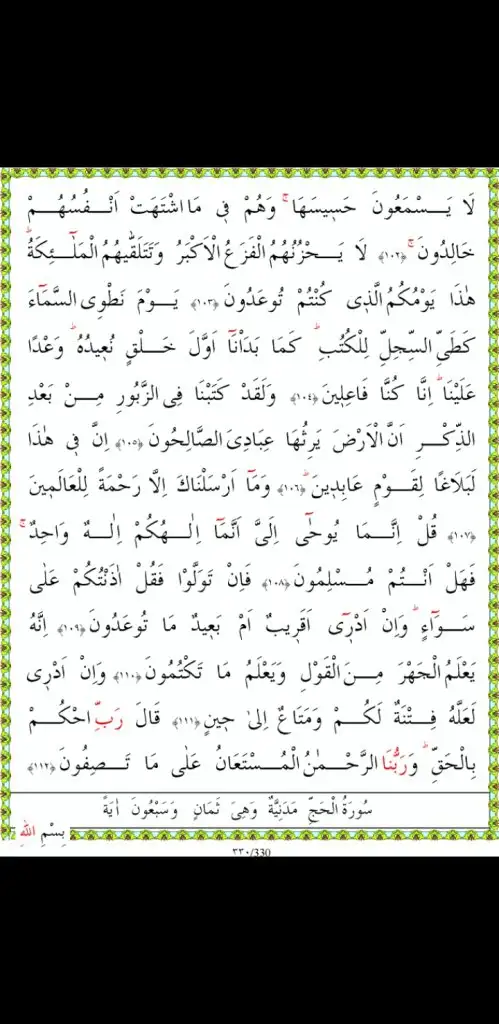 لَا يَسْمَعُونَ حَسٖيسَهَاۚ وَهُمْ فٖى مَا اشْتَهَتْ اَنْفُسُهُمْ
خَالِدُونَۚ ﴿١٠٢﴾ لَا يَحْزُنُهُمُ الْفَزَعُ الْاَكْبَرُ وَتَتَلَقّٰيهُمُ الْمَلٰٓئِكَةُؕ
هٰذَا يَوْمُكُمُ الَّذٖى كُنْتُمْ تُوعَدُونَ ﴿١٠٣﴾ يَوْمَ نَطْوِى السَّمَٓاءَ
كَطَىِّ السِّجِلِّ لِلْكُتُبِؕ كَمَا بَدَاْنَٓا اَوَّلَ خَلْقٍ نُعٖيدُهُؕ وَعْدًا
عَلَيْنَاؕ اِنَّا كُنَّا فَاعِلٖينَ ﴿١٠٤﴾ وَلَقَدْ كَتَبْنَا فِى الزَّبُورِ مِنْ بَعْدِ
الذِّكْرِ اَنَّ الْاَرْضَ يَرِثُهَا عِبَادِىَ الصَّالِحُونَ ﴿١٠٥﴾ اِنَّ فٖى هٰذَا
لَبَلَاغًا لِقَوْمٍ عَابِدٖينَؕ ﴿١٠٦﴾ وَمَٓا اَرْسَلْنَاكَ اِلَّا رَحْمَةً لِلْعَالَمٖينَ
﴿١٠٧﴾ قُلْ اِنَّمَا يُوحٰٓى اِلَىَّ اَنَّمَٓا اِلٰهُكُمْ اِلٰهٌ وَاحِدٌۚ
فَهَلْ اَنْتُمْ مُسْلِمُونَ ﴿١٠٨﴾ فَاِنْ تَوَلَّوْا فَقُلْ اٰذَنْتُكُمْ عَلٰى
سَوَٓاءٍؕ وَاِنْ اَدْرٖٓى اَقَرٖيبٌ اَمْ بَعٖيدٌ مَا تُوعَدُونَ ﴿١٠٩﴾ اِنَّهُ
يَعْلَمُ الْجَهْرَ مِنَ الْقَوْلِ وَيَعْلَمُ مَا تَكْتُمُونَ ﴿١١٠﴾ وَاِنْ اَدْرٖى
لَعَلَّهُ فِتْنَةٌ لَكُمْ وَمَتَاعٌ اِلٰى حٖينٍ ﴿١١١﴾ قَالَ رَبِّ احْكُمْ
بِالْحَقِّؕ وَرَبُّنَا الرَّحْمٰنُ الْمُسْتَعَانُ عَلٰى مَا تَصِفُونَ ﴿١١٢﴾
سُورَةُ الْحَجِّ مَدَنِيَّةٌ وَهِىَ ثَمَانٍ وَسَبْعُونَ اٰيَةً
بِسْمِ اللّٰهِ
٣٣٠/330